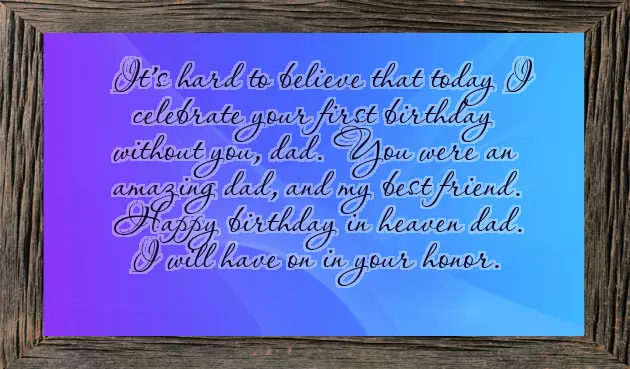 It's hard to believe that today I
celebrate your first birthday
without you, dad. You were an
amazing dad, and my best friend.
Happy birthday in heaven dad.
I will have on in your honor.